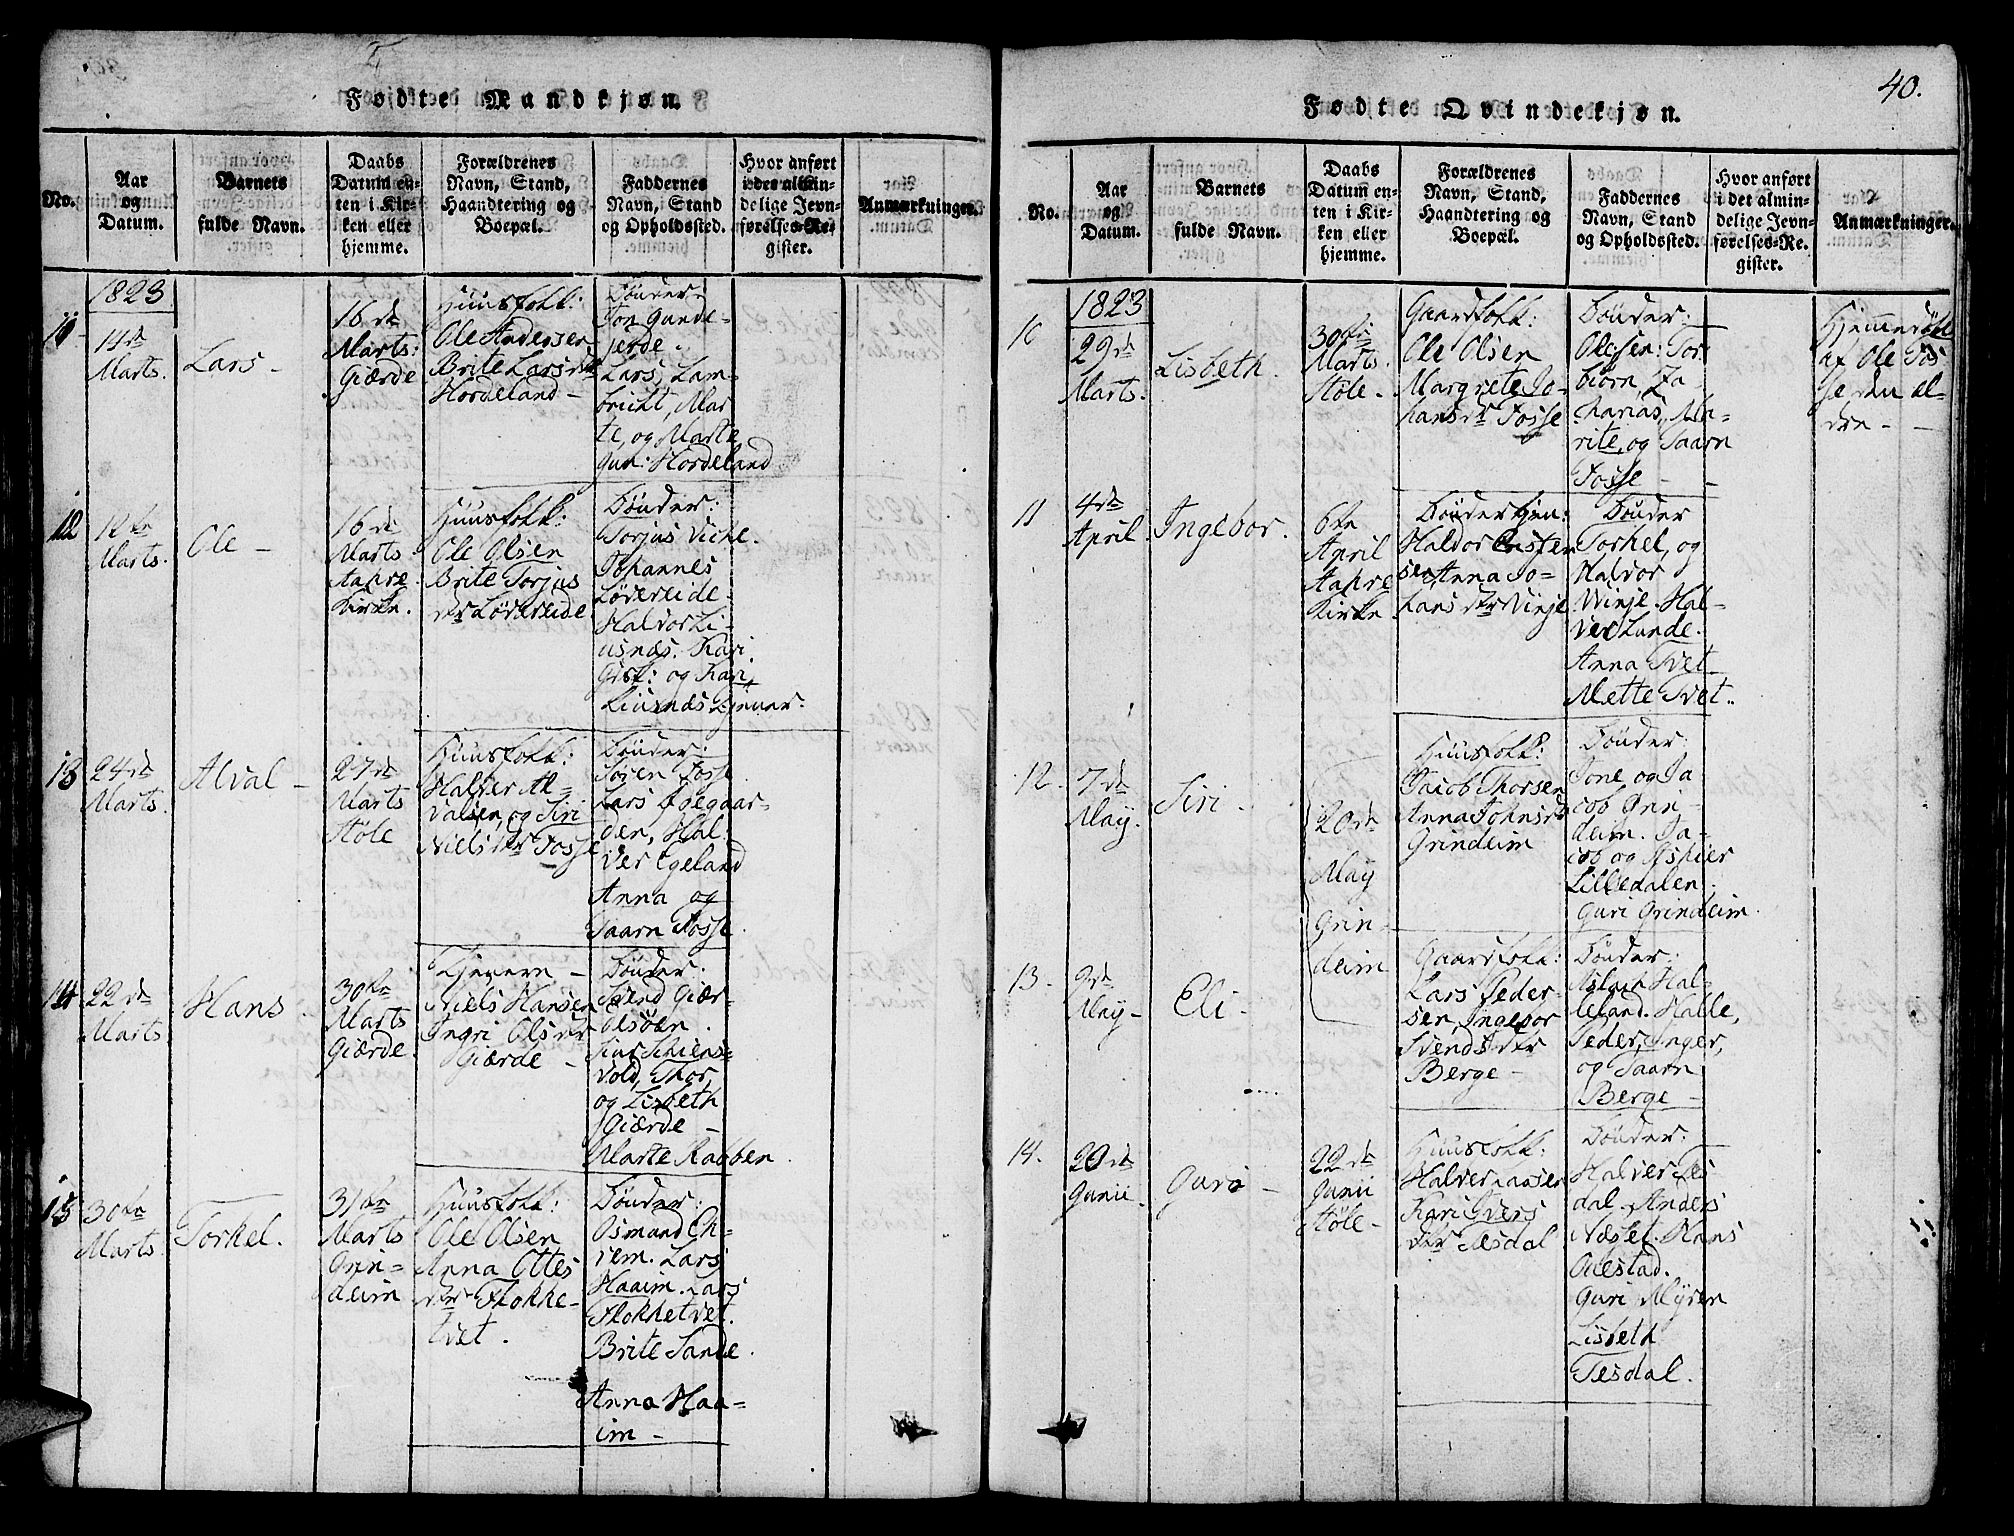 Fødte Mandkjøn.
No.
Aar
og
Datum.
Barnets
fulde Navn.
Daabs
Datum en-
ten i Kir-
ken eller
hjemme.
Forældrenes
Navn, Stand,
Haandtering og
Boepæl.
Faddernes
Navn, Stand
og Opholdssted.
Hvor anført
i det almin-
delige Jevn-
førelses-Re-
gister.
Anmærkninger.
1823
11
14de
Marts.
Lars -
16de
Marts:
Giærde
Huusfolk:
Ole Andersen
Brite Larsdtr
Hordeland -
Bønder:
Jon Gunde-
jerde.
Lars, Lam-
bricht, Mar
te, og Marte
Gun: Hordeland
12
12te
Marts.
Ole -
16de
Marts
Aahre
Kirke.
Huusfolk:
Ole Olsen
Brite Torjus
dtr Løvereide
Bønder:
Torjus Viche.
Johannes
Løvereide.
Halvor Li-
usnæs. Kari
og Kari
Liusnæs
13
24de
Marts
Alval -
27de
Marts
Støle
Huusfolk:
Halver Al-
valsen, og Siri
Niels dtr Fosse
Bønder:
Søren Fosse
Lars
den, Hal-
ver Egeland
Anna og
Taarn Fosse.
14
22de
Marts
Hans.
30te
Marts
Giærde.
Niels Hansen
Ingri Olsdtr
Giærde -
Bønder:
Svend Giær-
olsøen.
Siur Schiens-
vold, Thor,
og Lisbeth
Giærde -
Marte Rabben.
15
30te
Marts.
Torkel.
31te
Marts
Grin-
deim
Huusfolk:
Ole Olsen
Anna Ottes
dtr Flokke-
tvet.
Bønder:
Osmund En-
rem. Lars
Haaim. Lars
Flokketvet.
Brite Sande.
Anna Haa-
im -
40.
Fødte Qvindekjøn.
No.
Aar
og
Datum.
Barnets
fulde Navn.
Daabs
Datum en-
ten i Kir-
ken eller
hjemme.
Forældrenes
Navn, Stand,
Haandtering og
Boepæl.
Faddernes
Navn, Stand
og Opholdssted.
Hvor anført
i det almin-
delige Jevn-
førelses-Re-
gister.
Anmærkninger.
1823
10
29de
Marts.
Lisbeth.
30te
Marts.
Støle.
Gaardfolk:
Ole Olsen
Margrete Jo-
hansdr Fosse
Bønder:
Olesen: Tor
biørn, Za-
charias, Ma-
rite, og Taarn
Fosse -
Hjemmedøbt
af Ole Fos
se den el-
dre -
11
4de
April
Ingebor.
6te
April
Aahre
Kirke
Haldor
sen, Anna Jo-
hans dtr Vinje
Bønder
Torkel, og
Haldor
Vinje. Hal-
ver Lunde.
Anna Tvet
Mette Tvet.
12.
7de
May.
Siri.
20de
May
Grin-
deim
Huusfolk:
Jacob Thorsen
Anna Johnsd
Grindeim
Bønder:
Jone og Ja
cob Grin-
deim. Ja-
cob og Aspier
Lilledalen.
Guri Grindeim.
13.
9de
May -
Eli.
Gaardfolk:
Lars Peder-
sen, Ingebor
Svends dtr
Berge -
Bønder:
Aslach Hal-
leland. Halle,
Peder, Inger,
og Taarn
Berge -
14.
20de
Junii
Guro -
22de
Junii
Støle -
Huusfolk:
Halver Larsen
Kari Ivers
dtr Tesdal
Bønder:
Halver Tes
dal. Anders
Næset. Hans
Ovestad.
Guri Myren
Lisbeth
Tesdal.